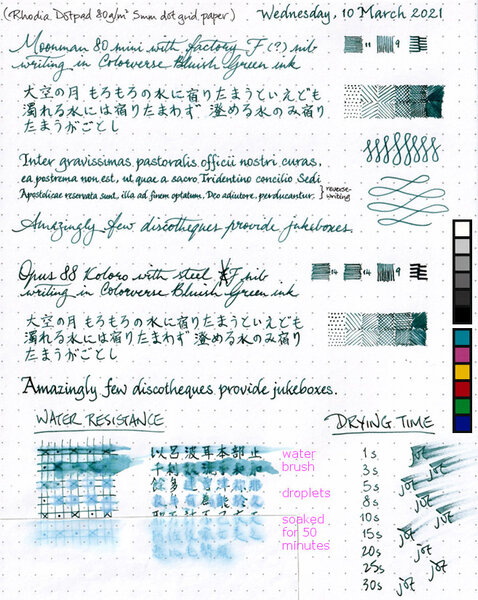 (Rhodia Dotpad 80g/m² 5mm dot grid paper)
Wednesday, 10 March 2021
Moonman 80 mini with factory F (?) nib
writing in Colorverse Bluish Green ink
11 9
大空の月 もろもろの水に宿りたまうといえども
濁れる水には宿りたまわず 澄める水のみ宿り
たまうがごとし
Inter gravissimas pastoralis officii nostri curas,
ea postrema non est, ut quae a sacro Tridentino concilio Sedi
Apostolicae reservata sunt, illa ad finem optatum, Deo adiutore, perducantur.
} reverse-
writing
Amazingly few discotheques provide jukeboxes.
Opus 88 Koloro with steel F nib
writing in Colorverse Bluish Green ink
14 14 9
大空の月 もろもろの水に宿りたまうといえども
濁れる水には宿りたまわず 澄める水のみ宿り
たまうがごとし
Amazingly few discotheques provide jukeboxes.
WATER RESISTANCE
以呂波耳本部止
water
brush
droplets
soaked
for 50
minutes
DRYING TIME
1s jot
3s jot
5s jot
8s jot
10s jot
15s jot
20s jot
25s jot
30s jot